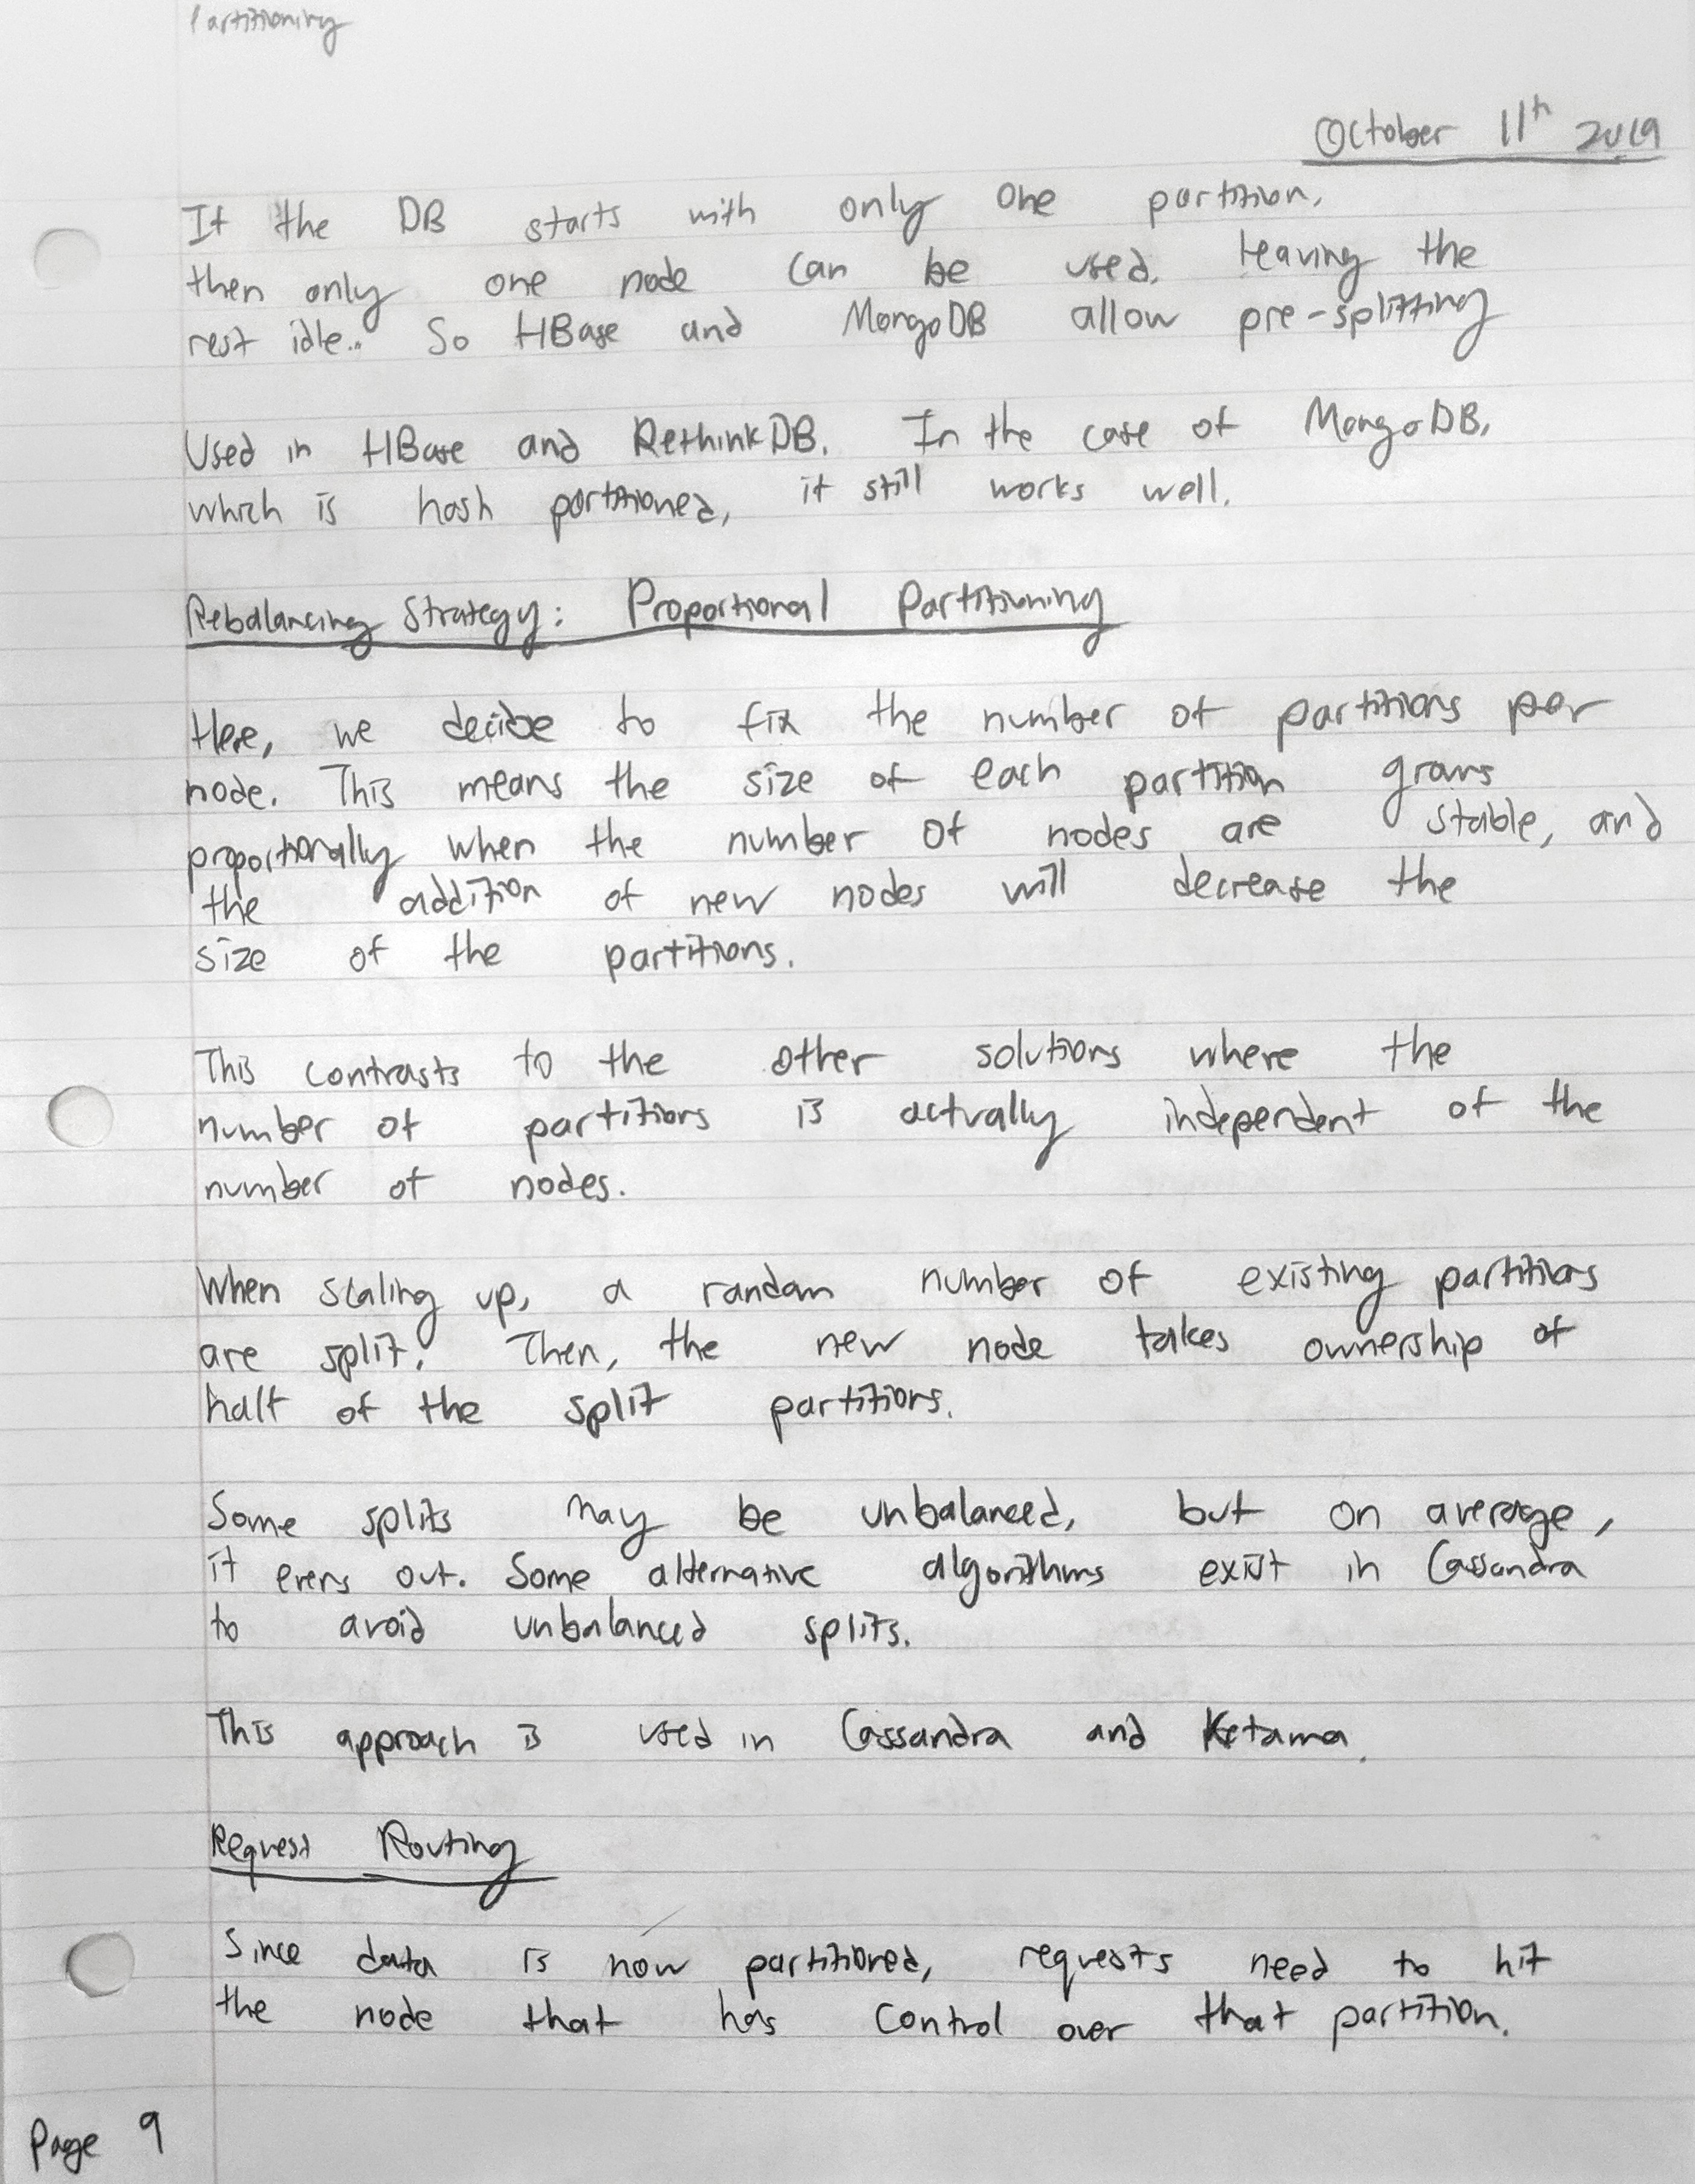 Partitioning
October 11th 2019
If the DB starts with only one partition,
then only one node can be used, leaving the
rest idle.. So HBase and MongoDB allow pre-splitting
Used in HBase and RethinkDB. In the case of MongoDB,
which is hash partitioned, it still works well.
Rebalancing Strategy: Proportional Partitioning
Here, we decide to fix the number of partitions per
node. This means the size of each partition grows
proportionally when the number of nodes are stable, and
the addition of new nodes will decrease the
size of the partitions.
This contrasts to the other solutions where the
number of partitions is actually independent of the
number of nodes.
When scaling up, a random number of existing partitions
are split. Then, the new node takes ownership of
half of the split partitions.
Some splits may be unbalanced, but on average,
it evens out. Some alternative algorithms exist in Cassandra
to avoid unbalanced splits.
This approach is used in Cassandra and Ketama.
Request Routing
Since data is now partitioned, requests need to hit
the node that has control over that partition.
Page 9